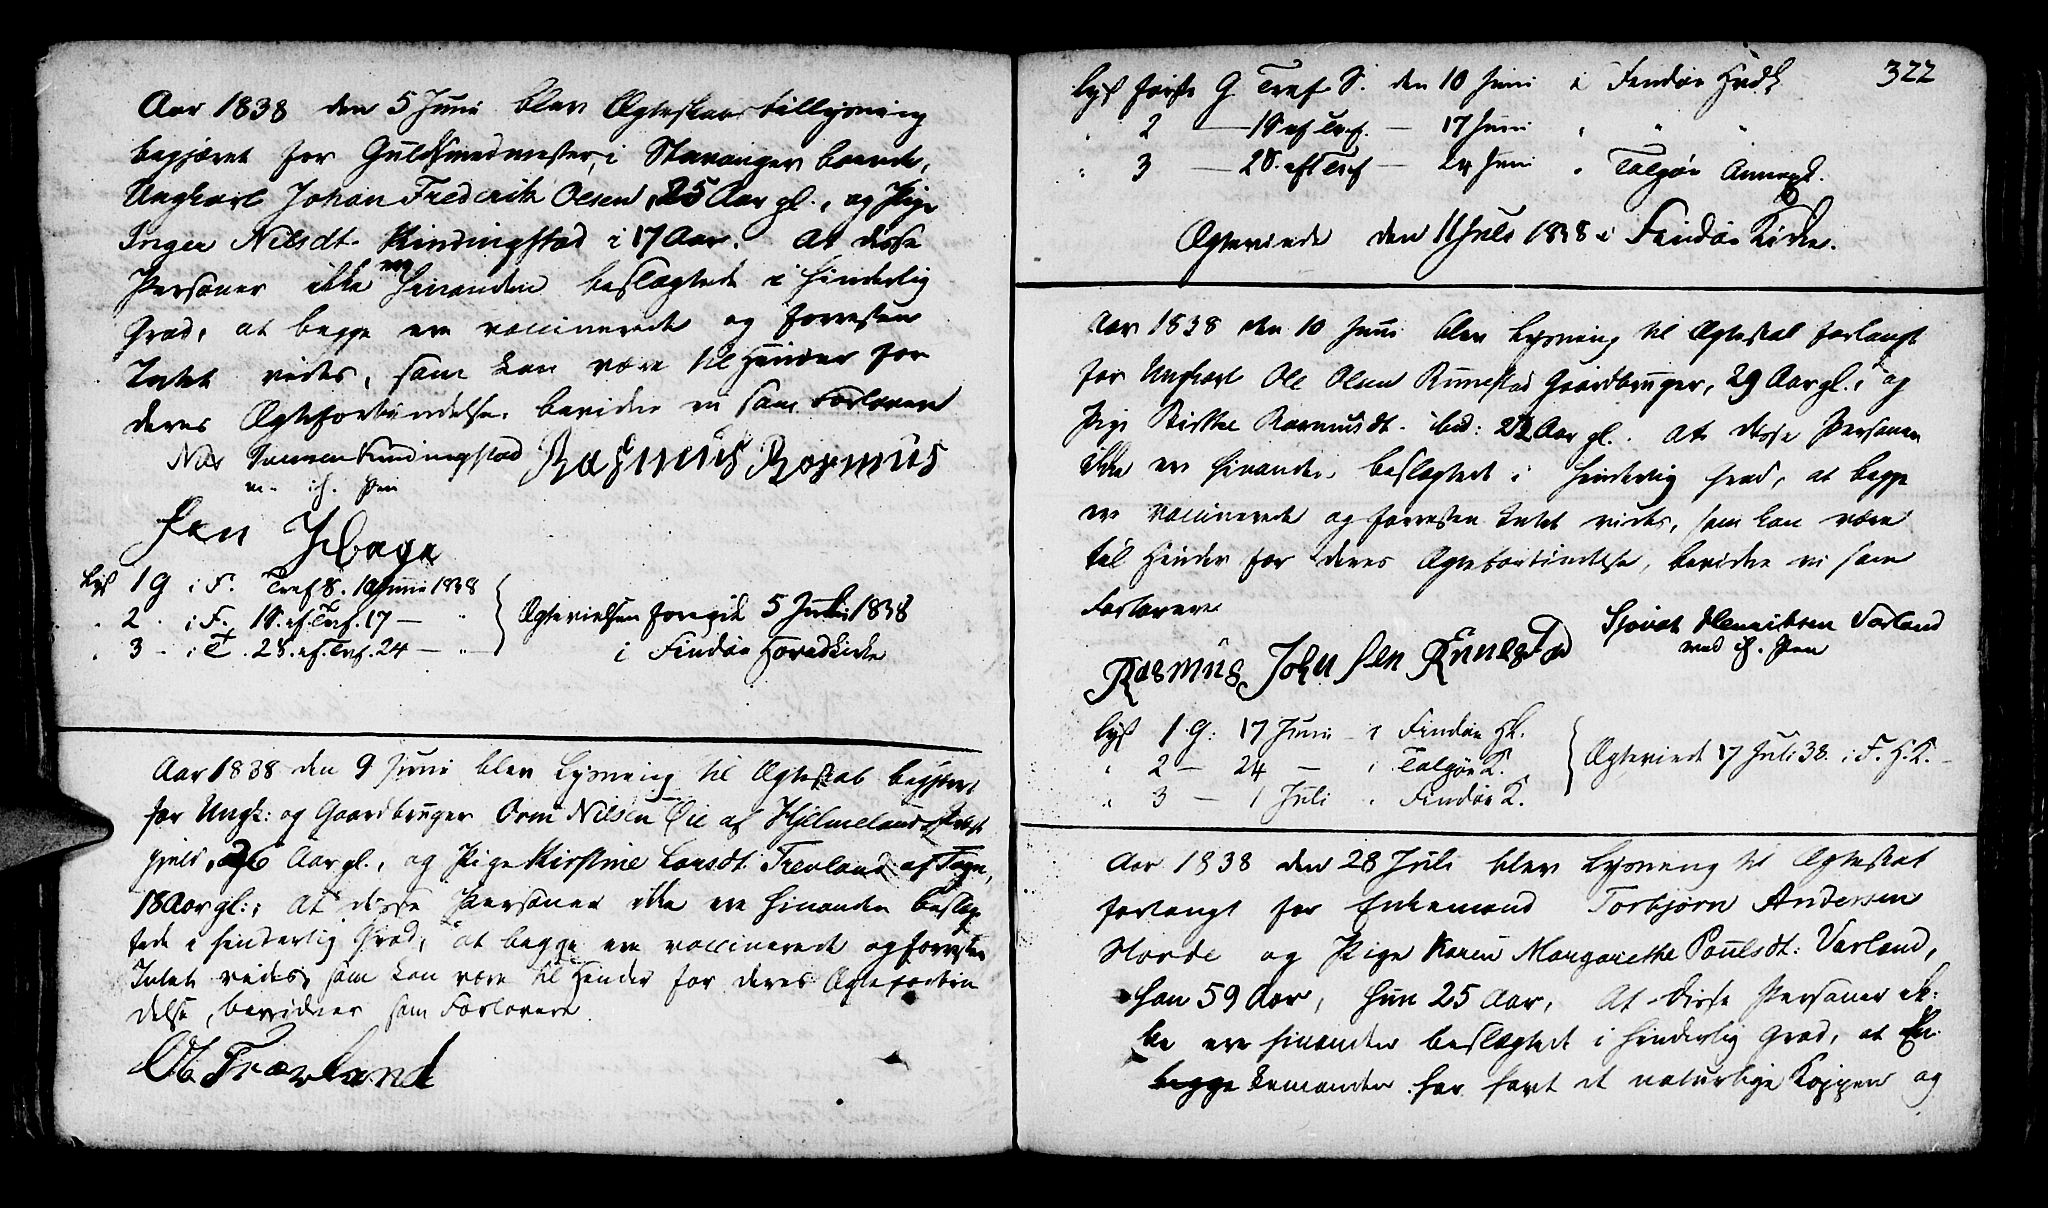 Aar 1838 den 5 Juni blev Ægteskabs tillysning
begjæret for Guldsmedmester, i Stavanger boende,
Ungkarl Johan Frederik Olsen, 25 Aar gl., og Pige
Inger Nilsdt. Kindingstad i 17 Aar. At disse
Personer ikke ere hinanden beslægtede i hinderlig
Grad, at begge ere vaccinerede og forresten
Intet vides, som kan være til Hinder for
deres Ægteforbindelse, bevidne vi som Forlovere
Nils Kindingstad Rasmus Rasmus
m. ih. Pen
Jan
Lyst 1 G i F. Tref S. 10 Juni 1838
" 2 - i F. 1 S. ef. Tref. 17 — "
" 3 - i T. 2 S. ef. Tref. 24 — "
Ægtevielsen foregik 5 Juli 1838
i Findøe Hovedkirke
Aar 1838 den 9 Juni blev Lysning til Ægteskab begjært
for Ungk: og Gaardbruger Orm Nilsen Øie af Hjelmelands Præste
gjeld, 26 Aar gl., og Pige Kirstine Larsdt. Trevland af Sogn,
18 Aar gl.; At disse Personer ikke ere hinanden beslæg
tede i hinderlig Grad, at begge ere vaccinerede og forresten
Intet vides, som kan være til Hinder for deres Ægteforbin
delse, bevidner som Forlovere
Ob. Trærland
322
lyst første G Tref S. den 10 Juni i Findøe Hvdk
" 2 — 1 S ef Tref. — 17 Juni " " "
" 3 — 2 S. eft Tref — 24 Juni " Talgøe Annex.
Ægteviede den 11 Juli 1838 i Findøe Kirke.
Aar 1838 den 10 Juni blev Lysning til Ægteskab forlangt
for Ungkarl Ole Olsen Runestad Gaardbruger, 29 Aar gl., og
Pige Rasmusdt. ibid: 22 Aar gl.. At disse Personer
ikke ere hinanden beslægtede i hinderlig Grad, at begge
ere vaccinerede og forresten Intet vides, som kan være
til Hinder for deres Ægteforbindelse, bevidne vi som
Forlovere
Sjovat Henriksen Varland
med ih. Pen
Rasmus John sen Runestad
lyst 1 G: 17 Juni - i Findøe Hk.
" 2 — 24 — " Talgøe K.
" 3 — 1 Juli " Findøe K.
Ægteviede 17 Juli 38. i F. H. K.
Aar 1838 den 28 Juli blev Lysning til Ægteskab
forlangt for Enkemand Torbjørn Andersen
Horde og Pige Karen Margarethe Poulsdt: Varland,
han 59 Aar, hun 25 Aar, At disse Personer ik-
ke ere hinanden beslægtede i hinderlig Grad, at En-
begge kemanden har havt de naturlige Kopper og